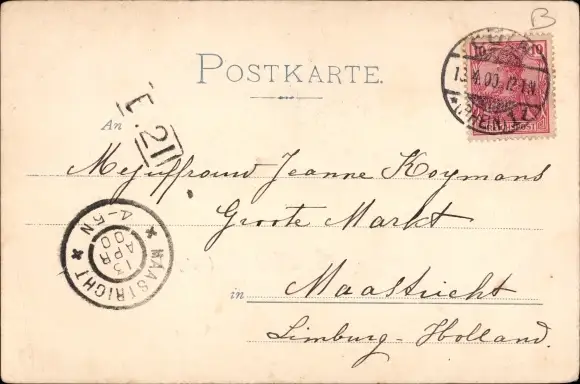 B
10 10
CÖLN
13.4.00. 12-1N
* (RHEIN) 1 Z
REICHSPOST
POSTKARTE.
E. 21
An
Mejuffrouw Jeanne Koymans
Groote Markt
in Maastricht
Limburg-Holland.
MAASTRICHT
13
APR
00
4-5N